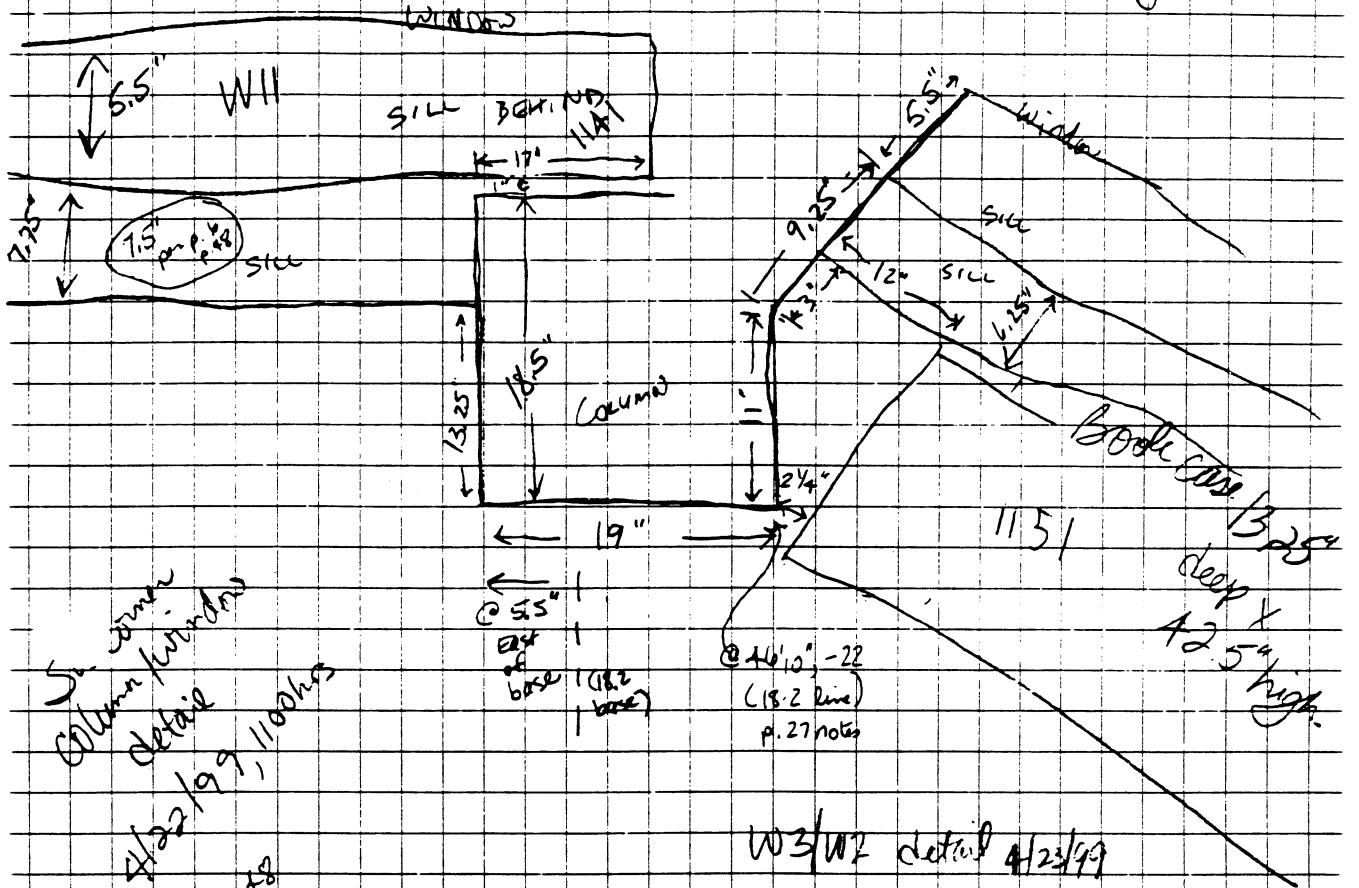 WINDOW
5.5"
W11
SILL BEHIND
1141
17"
7.25"
7.5"
per p.
p. 48
SILL
13.25"
18.5"
COLUMN
19"
5.5"
window
9.25"
SILL
3"
12"
SILL
6.25"
11"
2 1/4"
Bookcase 13.25"
deep x
42.5"
high.
1151
@ 5.5"
East
of
base
(18.2
base)
@ 46'10", -22
(18.2 line)
p. 27 notes
corner
column/window
detail
4/22/99, 1100hrs
48
W3/W2 detail 4/23/99